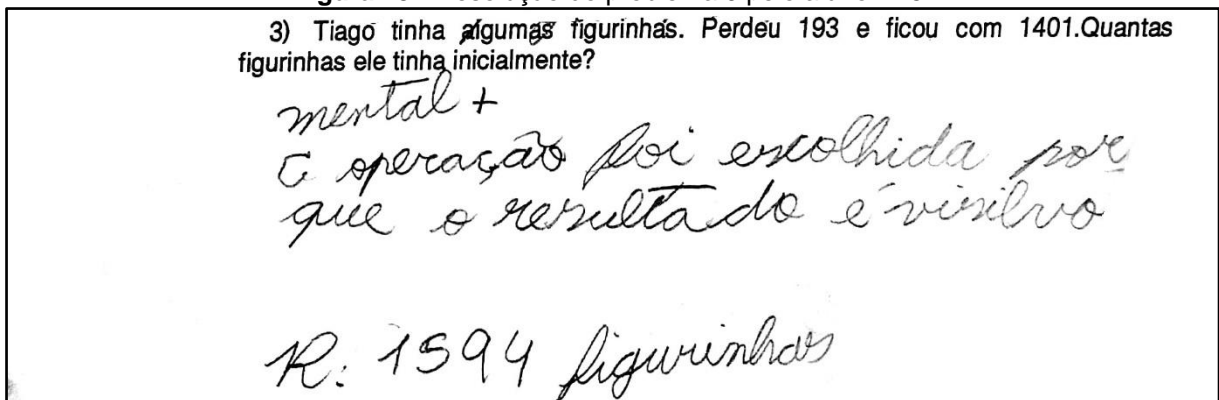 3) Tiago tinha algumas figurinhas. Perdeu 193 e ficou com 1401.Quantas
figurinhas ele tinha inicialmente?
mental +
a operação foi escolhida por
que o resultado é
R: 1594 figurinhas